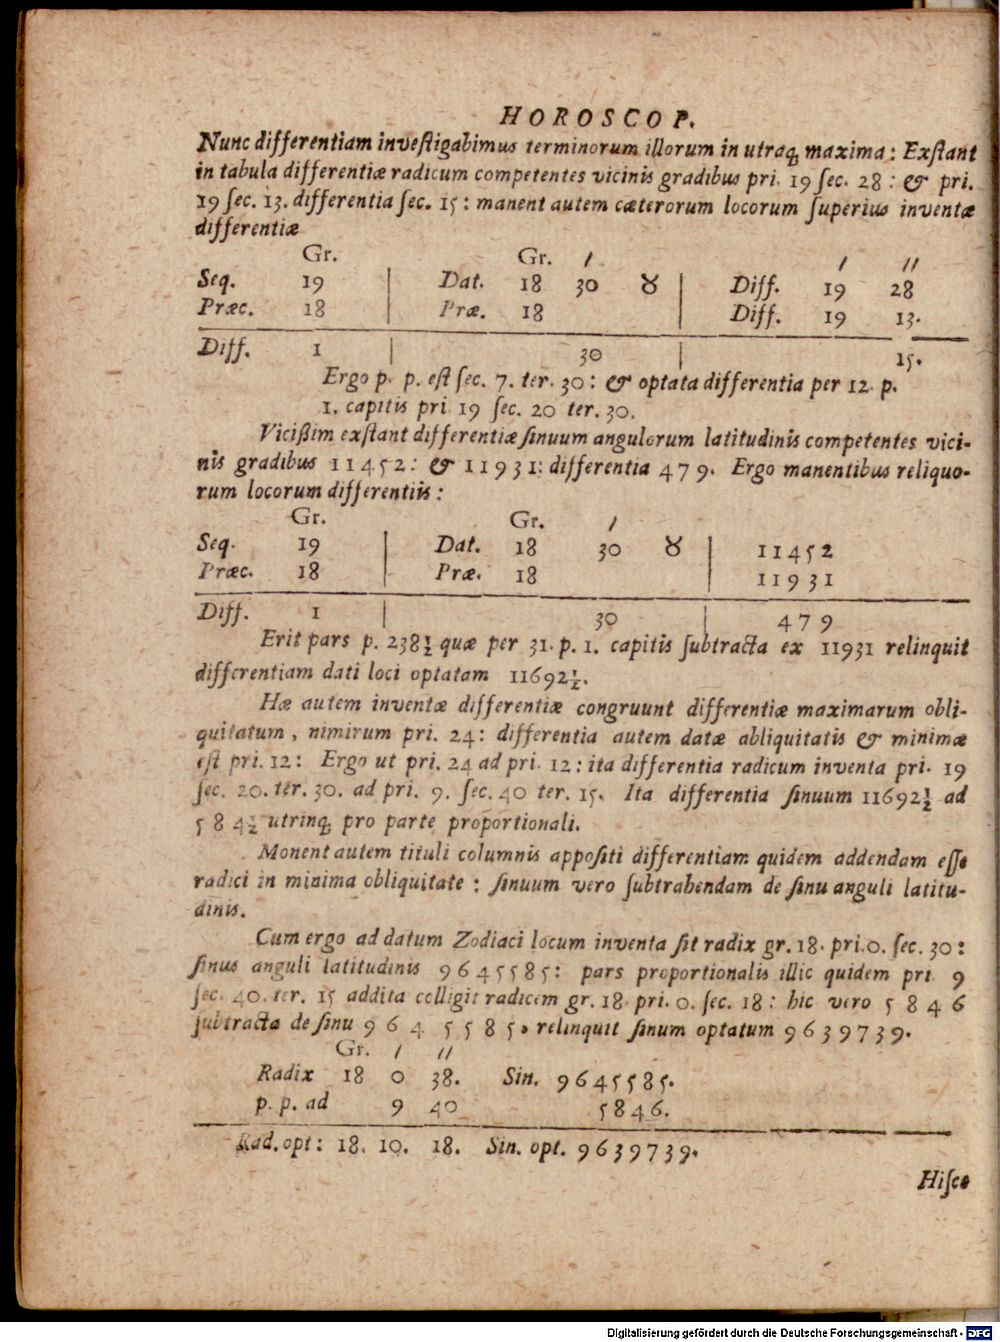 HOROSCOP.
Nunc differentiam investigabimus terminorum illorum in utraq; maxima: Exstant
in tabula differentiæ radicum competentes vicinis gradibus pri. 19 sec. 28: & pri.
19 sec. 13. differentia sec. 15: manent autem cæterorum locorum superius inventæ
differentiæ
Gr. Gr. / / //
Seq. 19 | Dat. 18 30 ♉ | Diff. 19 28
Præc. 18 | Præ. 18 | Diff. 19 13.
Diff. 1 | 30 | 15.
Ergo p. p. est sec. 7. ter. 30: & optata differentia per 12. p.
1. capitis pri 19 sec. 20 ter. 30.
Vicißim exstant differentiæ sinuum angulorum latitudinis competentes vici-
nis gradibus 11452: & 11931: differentia 479. Ergo manentibus reliquo-
rum locorum differentiis:
Gr. Gr. /
Seq. 19 | Dat. 18 30 ♉ | 11452
Præc. 18 | Præ. 18 | 11931
Diff. 1 | 30 | 479
Erit pars p. 238½ quæ per 31. p. 1. capitis subtracta ex 11931 relinquit
differentiam dati loci optatam 11692½.
Hæ autem inventæ differentiæ congruunt differentiæ maximarum obli-
quitatum, nimirum pri. 24: differentia autem datæ obliquitatis & minimæ
est pri. 12: Ergo ut pri. 24 ad pri. 12: ita differentia radicum inventa pri. 19
sec. 20. ter. 30. ad pri. 9. sec. 40 ter. 15. Ita differentia sinuum 11692½ ad
584½ utrinq; pro parte proportionali.
Monent autem tituli columnis appositi differentiam quidem addendam esse
radici in minima obliquitate: sinuum vero subtrahendam de sinu anguli latitu-
dinis.
Cum ergo ad datum Zodiaci locum inventa sit radix gr. 18. pri. 0. sec. 30:
sinus anguli latitudinis 9645585: pars proportionalis illic quidem pri. 9
sec. 40. ter. 15 addita colligit radicem gr. 18. pri. 0. sec. 18: hic vero 5846
subtracta de sinu 9645585, relinquit sinum optatum 9639739.
Gr. / //
Radix 18 0 38. Sin. 9645585.
p. p. ad 9 40 5846.
Rad. opt: 18. 10. 18. Sin. opt. 9639739.
Hisce
Digitalisierung gefördert durch die Deutsche Forschungsgemeinschaft - DFG